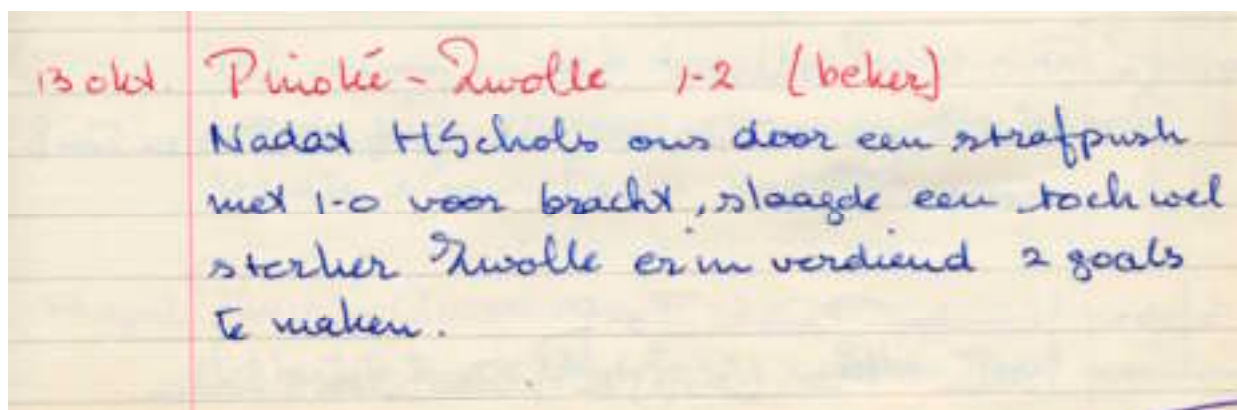 13 okt. Pinoké - Zwolle 1-2 (beker)
Nadat HSchols ons door een strafpush
met 1-0 voor bracht, slaagde een toch wel
sterker Zwolle erin verdiend 2 goals
te maken.